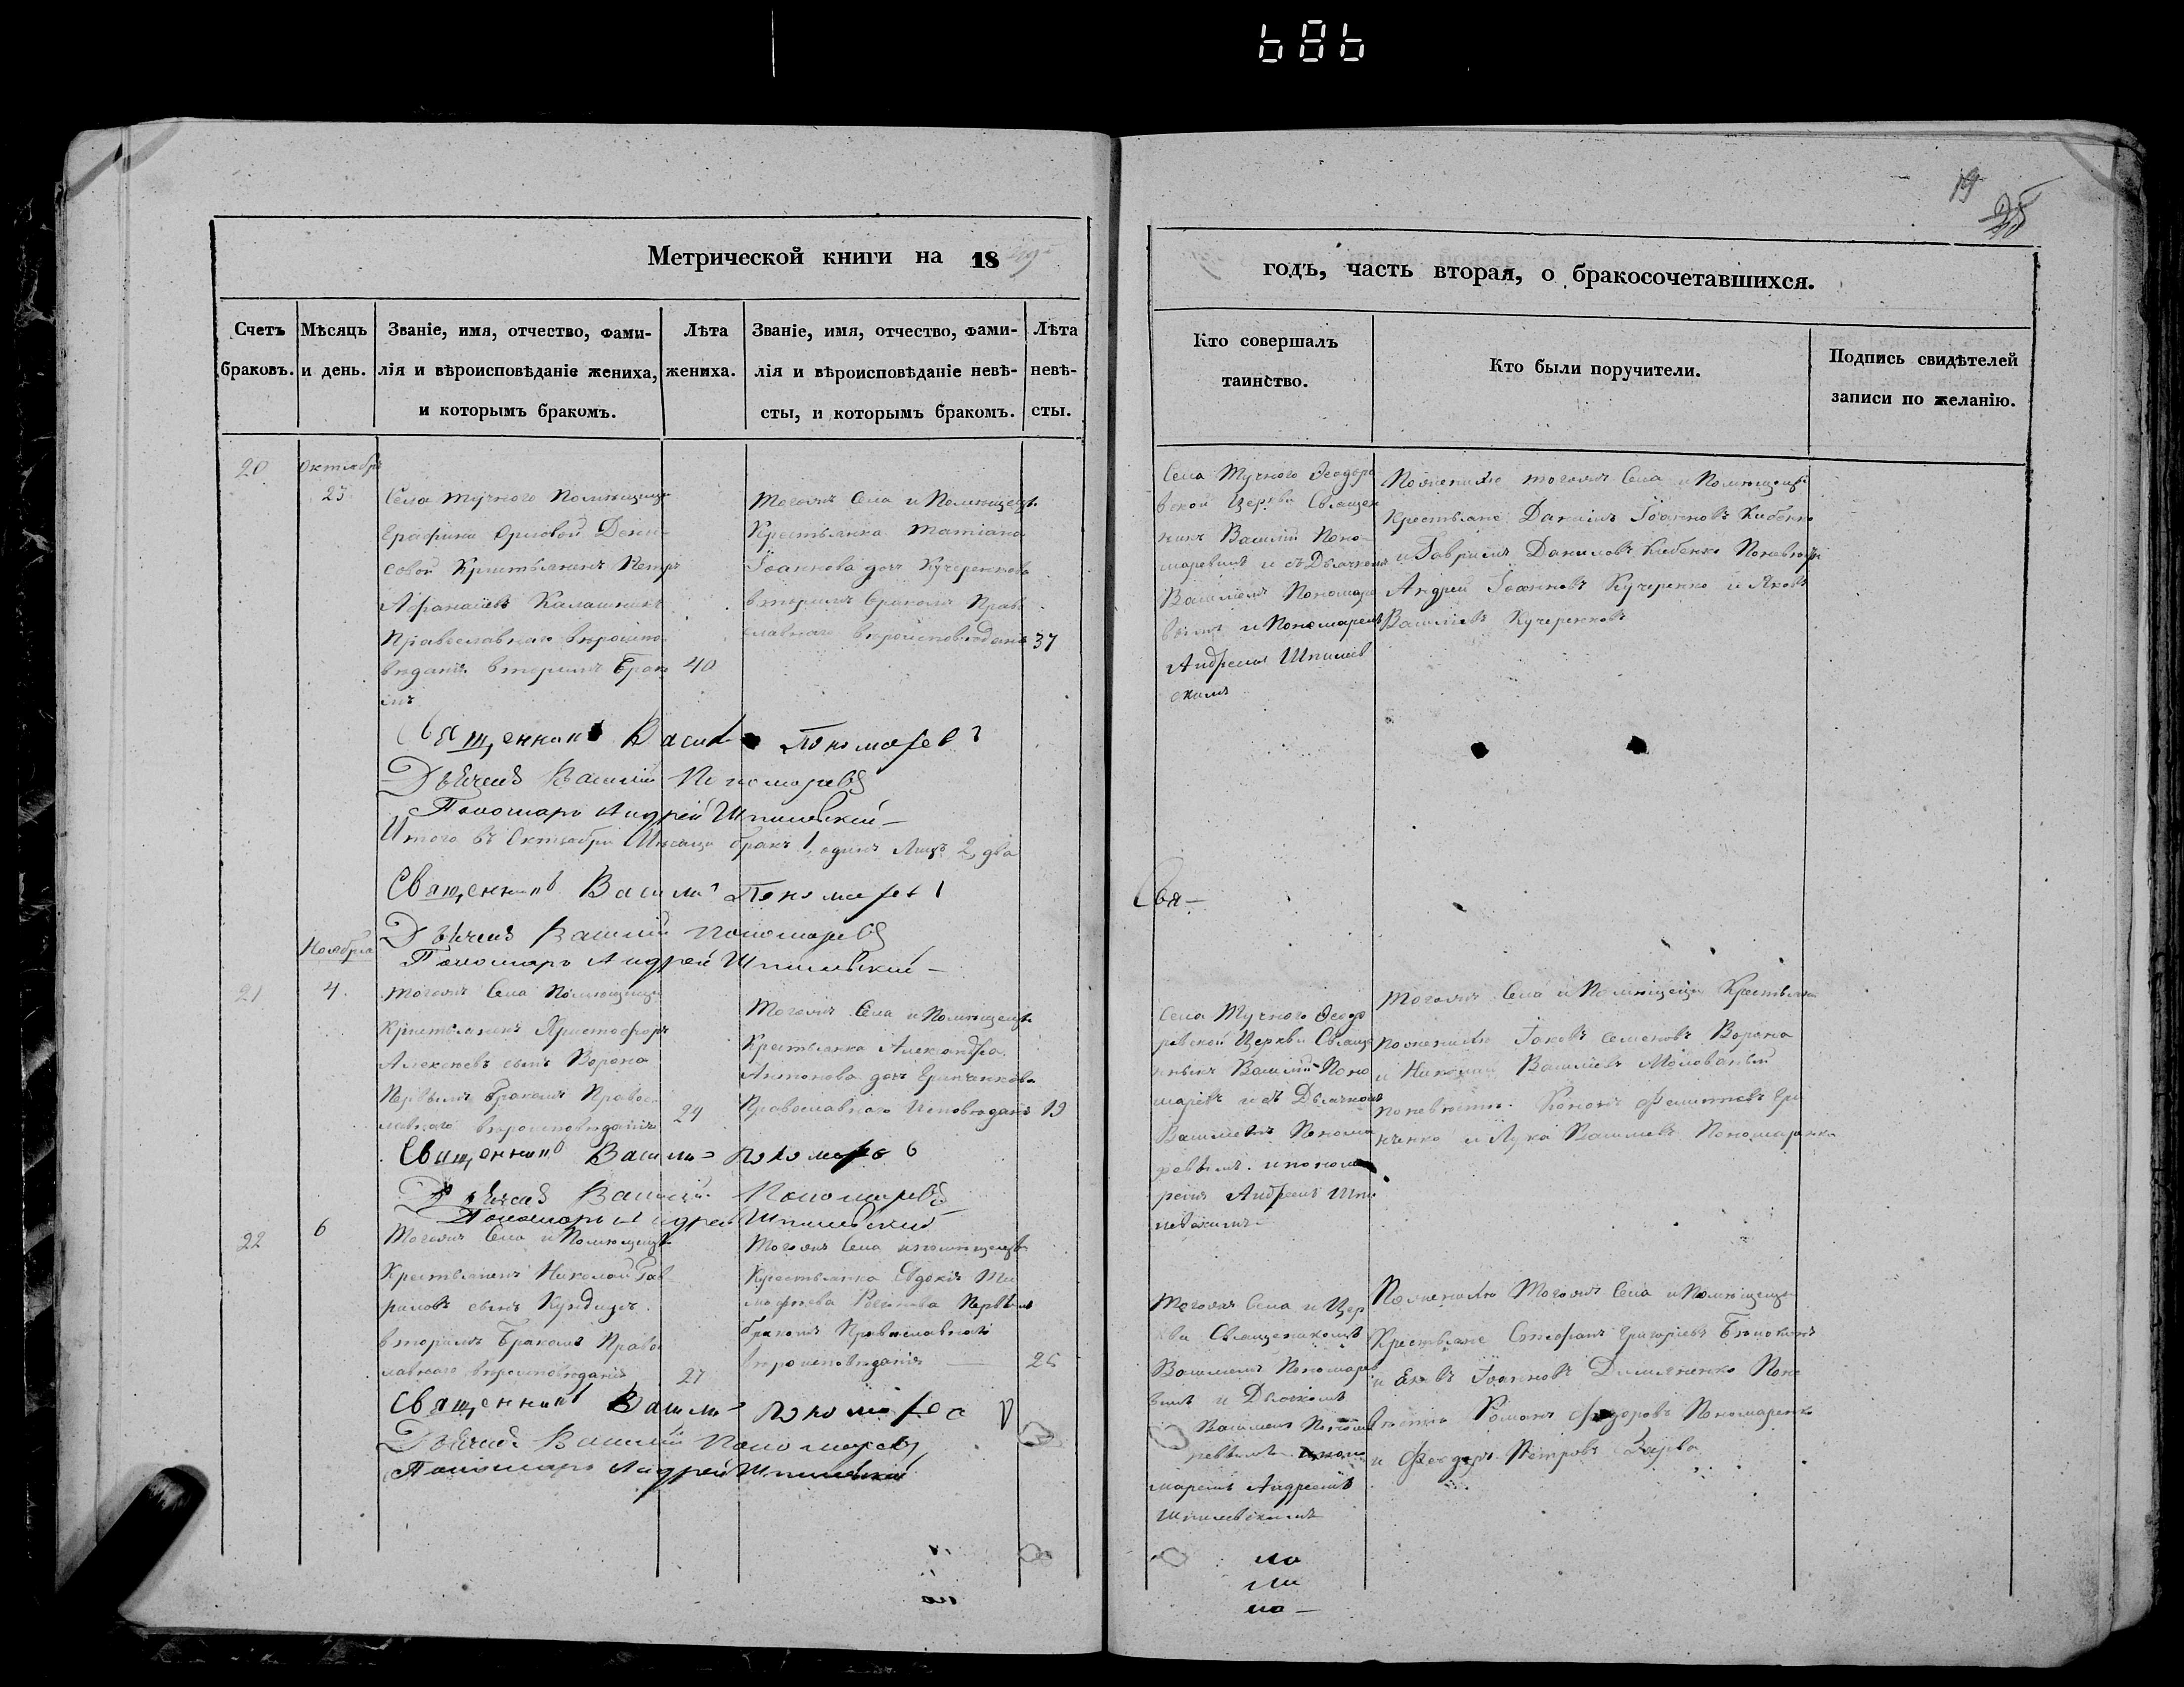 686
19
25
Метрической книги на 1849
годъ, часть вторая, о бракосочетавшихся.
Счетъ браковъ.
Мѣсяцъ и день.
Званіе, имя, отчество, фами-
лія и вѣроисповѣданіе жениха,
и которымъ бракомъ.
Лѣта
жениха.
Званіе, имя, отчество, фами-
лія и вѣроисповѣданіе невѣ-
сты, и которымъ бракомъ.
Лѣта
невѣ-
сты.
Кто совершалъ
таинство.
Кто были поручители.
Подпись свидѣтелей
записи по желанію.
20
Октября
23
Села Тучного Помѣщицы
Графини Орловой Дени-
совой Крестьянинъ Петръ
Афанасіевъ Калашникъ
Православнаго вѣроиспо-
вѣданія вторымъ Брако
мъ
40
Тогожъ Села и Помѣщицы
Крестьянка Татіана
Іоаннова доч Кучеренкова
вторымъ бракомъ Право
славнаго вѣроисповѣданія
37
Села Тучного Ѳеодоро
вской Церкви Священ
никъ Василій Поно-
маревымъ и съ Дьячкомъ
Василіемъ Пономаре
вымъ и Пономаремъ
Андреемъ Шпилев
скимъ
Пожениху тогожъ Села и Помѣщицы
Крестьяне Даніилъ Іоанновъ Кибенко
и Гавріилъ Даниловъ Кибенко Поневѣстѣ
Андрей Іоанновъ Кучеренко и Яковъ
Василіевъ Кучеренковъ
Священникъ Василій Пономаревъ
Дьячекъ Василій Пономаревъ
Пономарь Андрей Шпилевский
Итого въ Октябрѣ Мѣсяцѣ бракъ 1 одинъ Лицъ 2, два
Священникъ Василий Пономаревъ
Свя-
Дьячекъ Василий Пономаревъ
Пономарь Андрей Шпилевский
Ноября
21
4
Тогожъ Села Помѣщицы
Крестьянинъ Христофоръ
Алексѣевъ сынъ Ворона
Первымъ Бракомъ Правос-
лавнаго вѣроисповѣданія
24
Тогожъ Села и Помѣщицы
Крестьянка Александра
Антонова доч
Православнаго Исповѣданія
19
Села Тучного Ѳеодо
ровской Церкви Свяще
нникъ Василій Поно
маревъ и съ Дьячкомъ
Василіемъ Понома
ревымъ и понома
ремъ Андреемъ Шпи
левскимъ
Тогожъ Села и Помѣщицы Крестьяне
пожениху Іаковъ Семеновъ Ворона
и Николай Василіевъ Молованый
поневѣстѣ
и Лука Василіевъ Пономаренко
Священникъ Василий Пономаревъ
Дьячекъ Василий Пономаревъ
Пономарь Андрей Шпилевский
22
6
Тогожъ Села и Помѣщицы
Крестьянинъ Николай Гав
риловъ сынъ
вторымъ Бракомъ Право
лавнаго вѣроисповѣданія
27
Тогожъ Села и помѣщицы
Крестьянка Евдокія Ти
мофѣева Первымъ
бракомъ Православнаго
вѣроисповѣданія
Тогожъ Села и Цер
кви Священникомъ
Василіемъ Пономаре
вымъ и Дьячкомъ
Василіемъ Понома
ревымъ и поно
маремъ Андреемъ
Шпилевскимъ
Пожениху Тогожъ Села и Помѣщицы
Крестьяне Стефанъ Григоріевъ Бѣлоконь
и Іоанновъ Демьяненко Поне
вѣстѣ Романъ Федоровъ Пономаренко
и Федоръ Петровъ
Священникъ Василий Пономаревъ
Дьячекъ Василий Пономаревъ
Пономарь Андрей Шпилевский